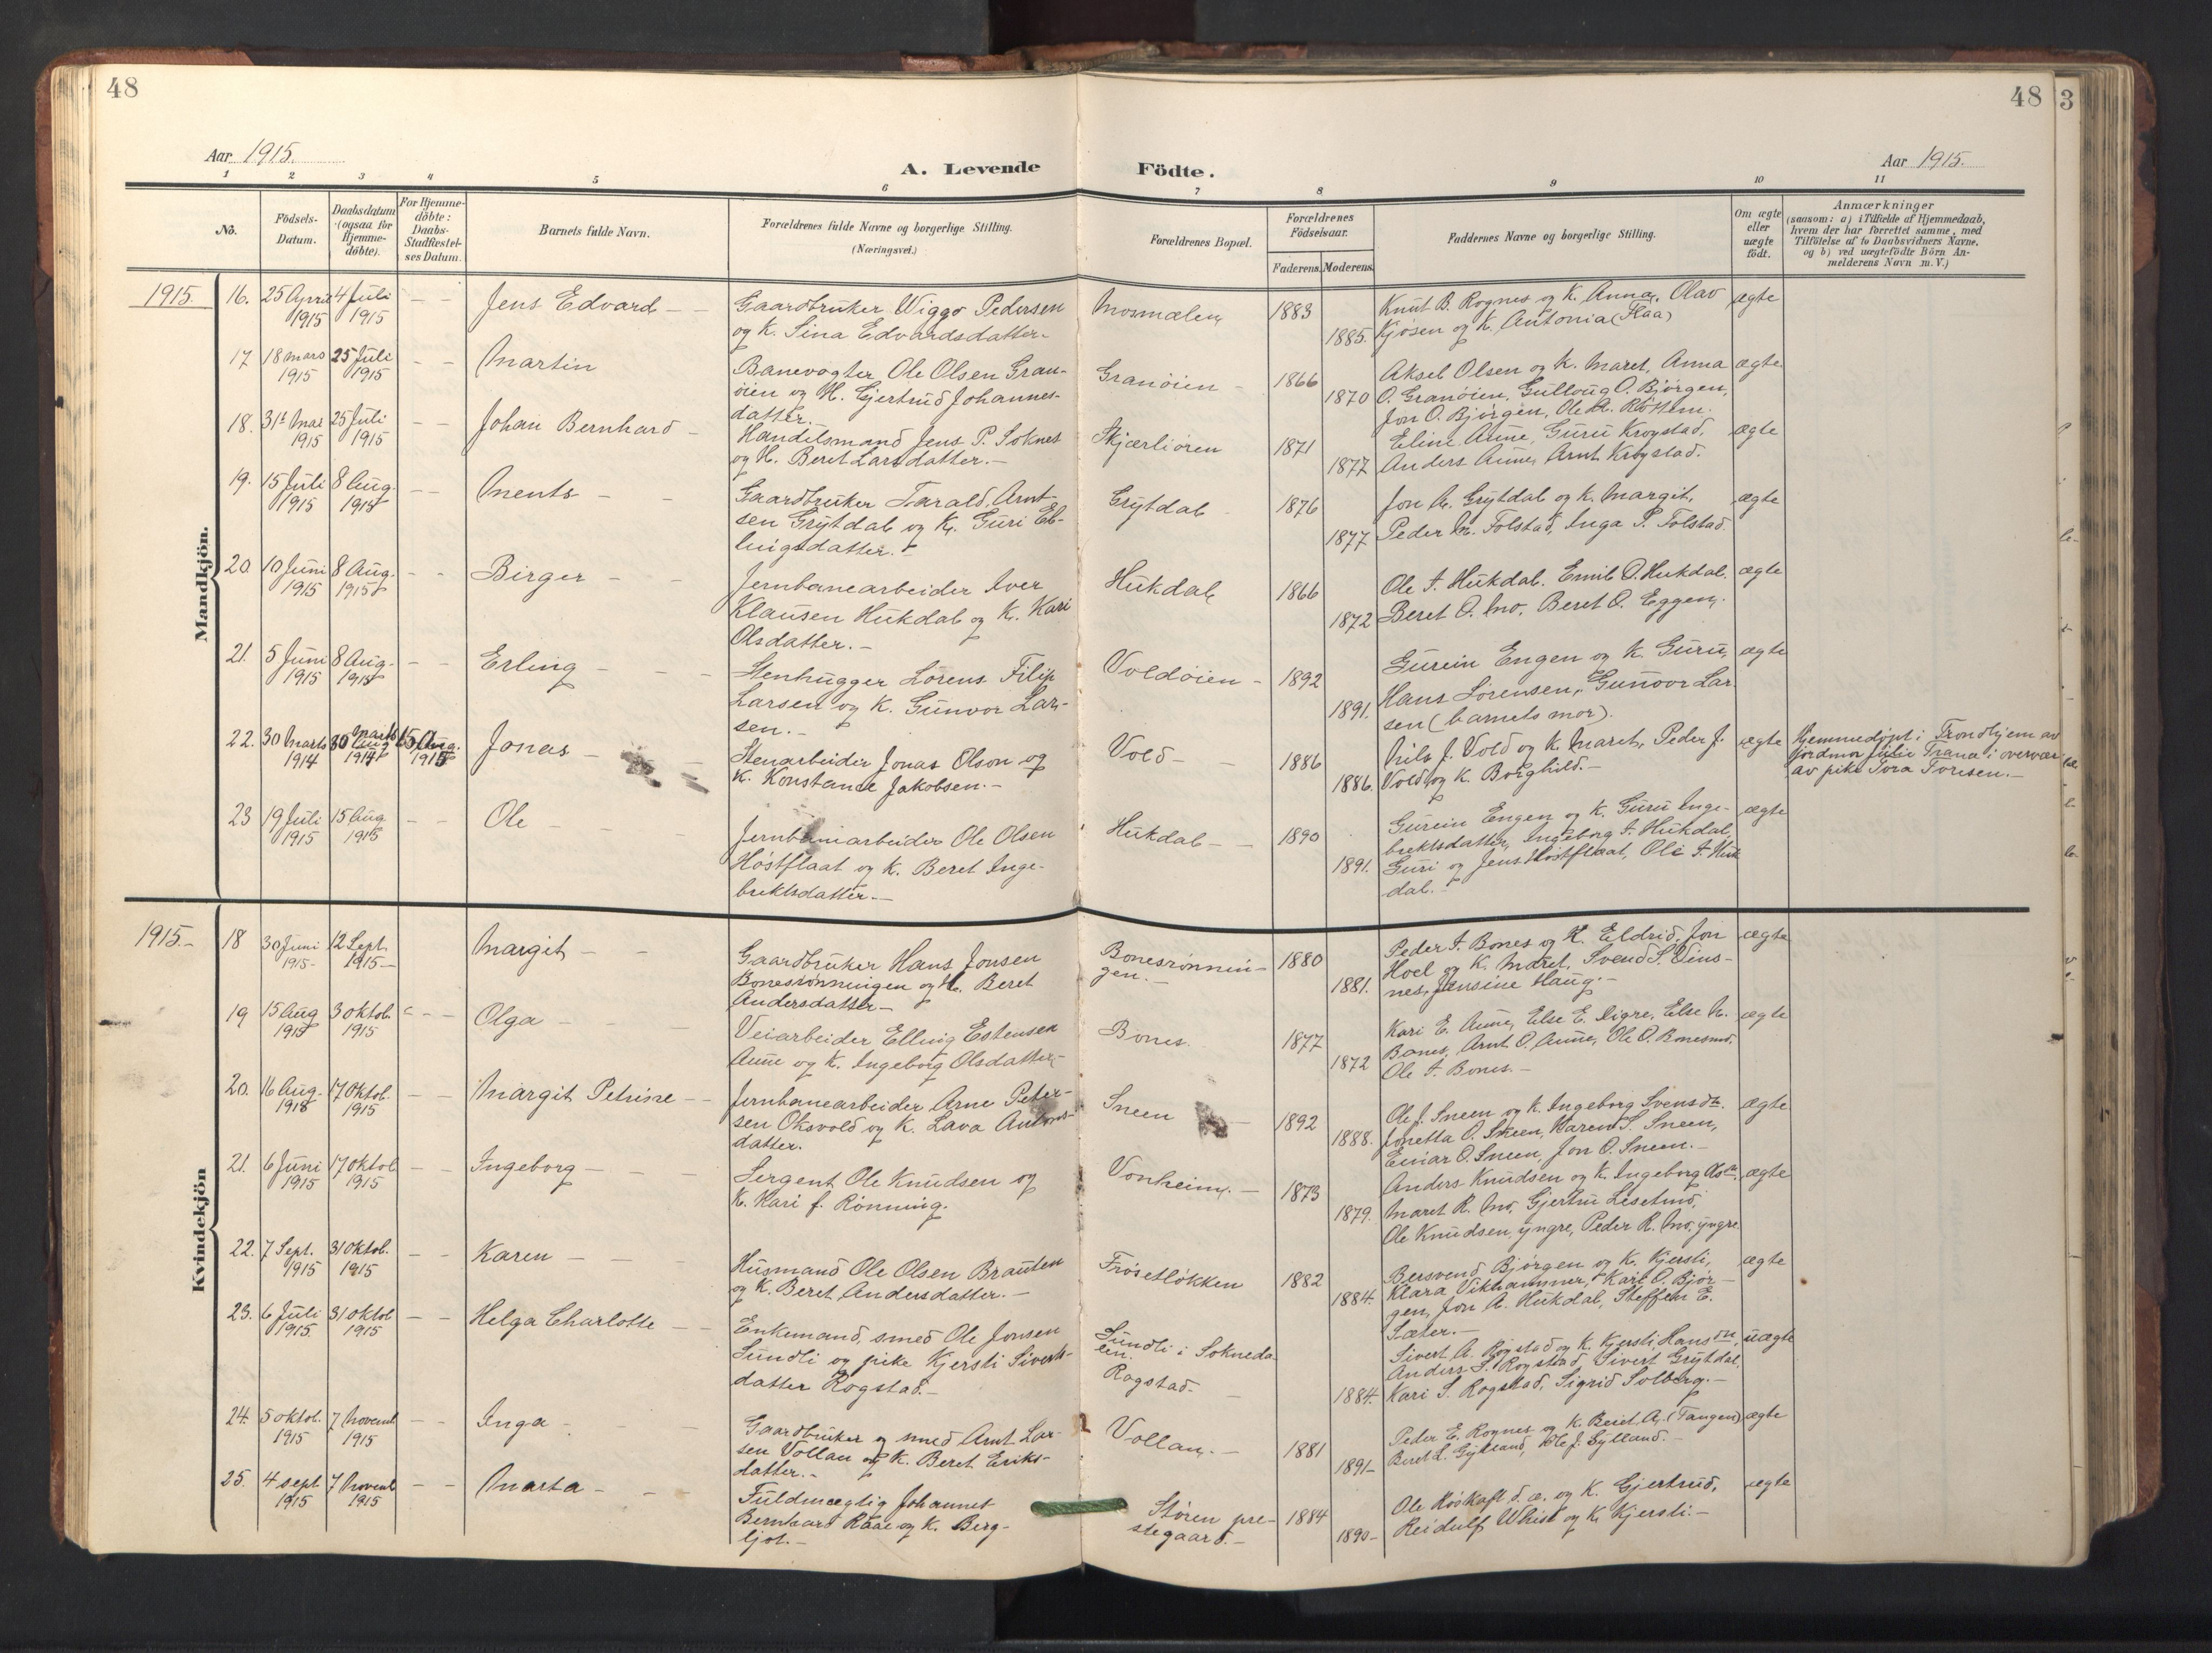 48
48
3
Aar 1915.
A. Levende Födte.
Aar 1915.
1 2 3 4 5 6 7 8 9 10 11
No.
Födsels-Datum.
Daabsdatum (ogsaa for Hjemmedöbte).
For Hjemmedöbte: Daabs-Stadfæstelses Datum.
Barnets fulde Navn.
Forældrenes fulde Navne og borgerlige Stilling.
(Næringsvei.)
Forældrenes Bopæl.
Forældrenes Födselsaar.
Faderens. Moderens.
Faddernes Navne og borgerlige Stilling.
Om ægte eller uægte födt.
Anmærkninger
(saasom: a) i Tilfælde af Hjemmedaab, hvem der har forrettet samme, med Tilföielse af to Daabsvidners Navne, og b) ved uægtefödte Börn Anmelderens Navn m. V.)
Mandkjön.
1915. 16. 25 April 1915 4 Juli 1915 – – Jens Edvard – –
Gaardbruker Wiggo Pedersen
og K. Sina Edvardsdatter.
Mosmælen 1883 1885.
Knut B. Rognes og K. Anna, Olav
Kjösen og K. Antonia (Flaa)
ægte
17 18 mars 1915 25 Juli 1915 – – Martin
Banevogter Ole Olsen Gran-
öien og K. Gjertrud Johannes-
datter.
Granöien – 1866 1870
Aksel Olsen og K. Maret, Anna
O. Granöien, Gullaug O. Bjørgen,
Jon O. Bjørgen, Ole A. Röttem.
ægte
18. 31te Mar 1915 25 Juli 1915 – – Johan Bernhard –
Handelsmand Jens P. Soknes
og K. Beret Larsdatter. –
Skjærliören 1871 1877
Eline Aune, Guru Krogstad,
Anders Aune, Arnt Krogstad.
ægte
19. 15 Juli 1915 8 Aug. 1915 – – Ments – –
Gaardbruker Tarald Arnt-
sen Grytdal og K. Guri El-
lingsdatter. –
Grytdal 1876 1877
Jon A. Grytdal og K. Margit,
Peder M. Folstad, Inga P. Folstad.
ægte
20. 10 Juni 1915 8 Aug. 1915 – – Birger – –
Jernbanearbeider Iver
Klausen Hukdal og K. Kari
Olsdatter. –
Hukdal 1866 1872
Ole I. Hukdal. Emil O. Hukdal.
Beret O. Mo, Beret O. Eggen.
ægte
21. 5 Juni 1915 8 Aug. 1915 – – Erling – –
Stenhugger Lorens Filip
Larsen og K. Gunvor Lar-
sen. –
Voldöien – 1892 1891.
Gurein Engen og K. Guru,
Hans Lorensen, Gunvor Lar-
sen (barnets mor).
ægte
22. 30 Marts 1914 30 Marts 1914 15 Aug. 1915 Jonas –
Stenarbeider Jonas Olson og
K. Konstance Jakobsen. –
Vold – – 1886 1886.
Nils J. Vold og K. Maret, Peder J.
Vold og K. Borghild. –
ægte
Hjemmedøpt i Trondhjem av
jordmor Julie Trana i overvær
av pike Tora Toresen. –
23 19 Juli 1915 15 Aug 1915 – – Ole – – –
Jernbanearbeider Ole Olsen
Höstflaat og K. Beret Inge-
brektsdatter. –
Hukdal – – 1890 1891.
Gurein Engen og K. Guru Inge-
brektsdatter, Ingeborg I. Hukdal,
Guri og Jens Höstflaat, Ole I. Huk
dal. –
ægte
Kvindekjön
1915. – 18 30 Juni 1915 – 12 Sept. 1915 – Margit – –
Gaardbruker Hans Jonsen
Bonesrönningen og K. Beret
Andersdatter –
Bonesrönnin-
gen. – 1880 1881.
Peder I. Bones og K. Eldrid, Jon
Hoel og K. Maret, Svend S. Vins-
nes, Jensine Haug. –
ægte
19 15 Aug 1915 3 oktob. 1915 – – Olga – – –
Veiarbeider Elling Estensen
Aune og K. Ingeborg Olsdatter
Bones. 1877 1872
Kari E. Aune, Else E. Digre, Else N.
Bones, Arnt O. Aune, Ole O. Bonesmo,
Ole I. Bones. –
ægte
20. 16 Aug. 1915 17 Oktob. 1915 – – Margit Petrine – –
Jernbanearbeider Arne Peter-
sen Oksvold og K. Lava
datter.
Sneen – 1892 1888.
Ole J. Sneen og K. Ingeborg Svensdtr.
Jonetta O. Sneen, Maren S. Sneen,
Einar O. Sneen, Jon O. Sneen. –
ægte
21. 6 Juni 1915 17 oktob. 1915 – – Ingeborg – – –
Sergent Ole Knudsen og
K. Kari f. Rönning.
Vonheim. – 1873 1879.
Anders Knudsen og K. Ingeborg
Maret R. Mo, Gjertru Lisetmo,
Ole Knudsen yngre, Peder R. Mo, yngre.
ægte
22. 7 Sept. 1915 31 Oktob. 1915 – – Karen – – –
Husmand Ole Olsen Brauten
og K. Beret Andersdatter. –
Fröseslökken 1882 1884.
Bersvend Bjørgen og K. Kjersti,
Klara Vikhammer, Kari O. Björ-
gen, Jon A. Hukdal, Steffen E.
Sæter. –
ægte
23. 6 Juli 1915 31 oktob 1915 – – Helga Charlotte – –
Enkemand, smed Ole Jonsen
Sundli og pike Kjersti Siverts-
datter Rogstad. –
Sundli i Sokneda-
len.
Rogstad. – 1884.
Sivert A. Rogstad og K. Kjersti Hansdtr.
Anders S. Rogstad, Sivert Grytdal,
Kari S. Rogstad, Sigrid Solberg. –
uægte
24. 5 oktob. 1915 7 Novemb 1915 – – Inga – – –
Gaardbruker og smed Arnt Lar-
sen Vollan og K. Beret Eriks-
datter. –
Vollan. – 1881 1891 –
Peder E. Rognes og K. Beret A. (Tangen)
Beret L. Gylland, Ole J. Gylland. –
ægte
25. 4 sept 1915 7 Novemb 1915 – – Marta – –
Fuldmægtig Johannes
Bernhard Raae og K. Berg-
ljot. –
Støren pre-
stegaard. – 1884 1890 –
Ole Röskaft d. æ. og K. Gjertrud,
Reidulf Whist og K. Kjersti. –
ægte